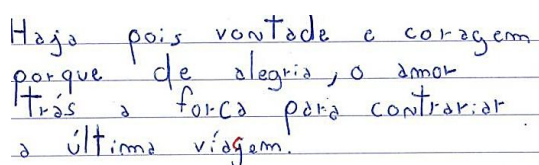 Haja pois vontade e coragem
porque de alegria, o amor
trás a força para contrariar
a última viagem.